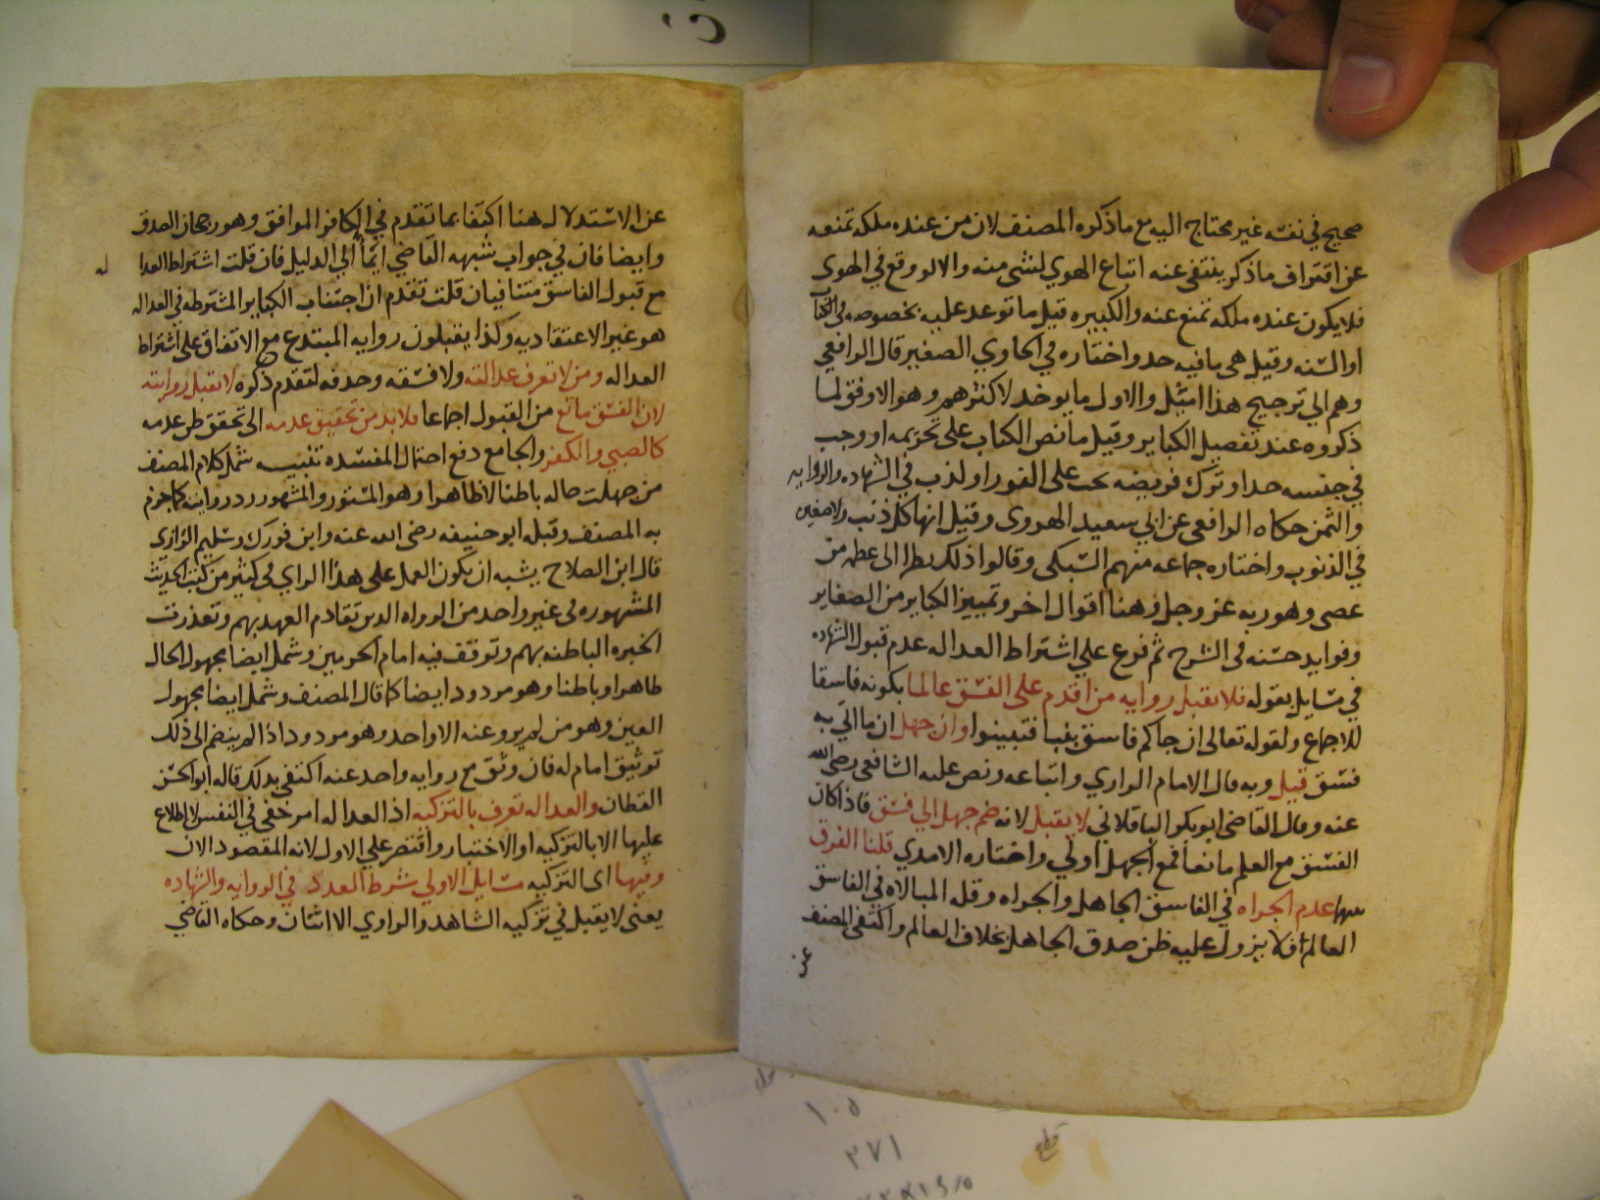 صحيح في نفسه غير محتاج اليه مع ما ذكره المصنف لان من عنده ملكه تمنعه
عن اقتراف ما ذكر ينتفي عنه اتباع الهوي لشي منه والا لوقع في الهوي
فلا يكون عنده ملكه تمنع عنه والكبيره قيل ما توعد عليه بخصوصه في الكتاب
او السنه وقيل هي ما فيه حد واختاره في الحاوي الصغير قال الرافعي
وهم الي ترجيح هذا اميل والاول ما يوخد لاكثرهم وهو الاوفق لما
ذكروه عند تفصيل الكباير وقيل ما نص الكتاب علي تحريمه او وجب
في جنسه حد او ترك فريضه يجب علي الفور او لذب في الشهاده والروايه
واليمن حكاه الرافعي عن ابي سعيد الهروي وقيل انها كل ذنب ولا صغير
في الذنوب واختاره جماعه منهم السبكي وقالوا ذلك نظرا الي عظمه من
عصي وهو ربه عز وجل وهنا اقوال اخر وتمييز الكباير من الصغاير
وفوايد حسنه في الشرح ثم فرع علي اشتراط العداله عدم قبول الشهاده
في مسايل بقوله فلا يقبل روايه من اقدم علي الفسق عالما بكونه فاسقا
للاجماع ولقوله تعالي ان جاكم فاسق بنبا فتبينوا وان جهل ان ما اتي به
فسق قيل وبه قال الامام الرازي واتباعه ونص عليه الشافعي رضي الله
عنه وقال القاضي ابو بكر الباقلاني لا يقبل لانه ضم جهل الي فسق فاذا كان
الفسق مع العلم مانعا فمع الجهل اولي واختاره الامدي قلنا الفرق
بينهما عدم الجراه في الفاسق الجاهل والجراه وقله المبالاه في الفاسق
العالم فلا يزول عليه ظن صدق الجاهل بخلاف العالم واكتفي المصنف
عن
عن الاستدلال هنا اكتفا بما تقدم في الكافر الموافق وهو رجحان الصدق
وايضا فان في جواب شبهه القاضي ايما الي الدليل فان قلت اشتراط العدا
له
مع قبول الفاسق متنافيان قلت تقدم ان اجتناب الكباير المشترطه في العداله
هو غير الاعتقاديه وكذا يقبلون روايه المبتدع مع الاتفاق علي اشتراط
العداله ومن لا تعرف عدالته ولا فسقه وحدفه لتقدم ذكره لا تقبل روايته
لان الفسق مانع من القبول اجماعا فلا بد من تحقيق عدمه الي تحقق ظن عدمه
كالصبي والكفر والجامع دفع احتمال المفسده تنبيه شمل كلام المصنف
من جهلت حاله باطنا لا ظاهرا وهو المستور والمشهور رد روايته كما جزم
به المصنف وقبله ابو حنيفه رضي الله عنه وابن فورك وسليم الرازي
قال ابن الصلاح يشبه ان يكون العمل علي هذا الراي في كثير من كتب الحديث
المشهوره في غير واحد من الرواه الدين تقادم العهد بهم وتعذرت
الخبره الباطنه بهم وتوقف فيه امام الحرمين وشمل ايضا مجهول الحال
ظاهرا وباطنا وهو مردود ايضا كما قال المصنف وشمل ايضا مجهول
العين وهو من لم يرو عنه الا واحد وهو مردود اذا لم ينضم الي ذلك
توثيق امام له فان وثق مع روايه واحد عنه اكتفي بذلك قاله ابو الحسن
القطان والعداله تعرف بالتزكيه اذ العداله امر خفي في النفس لا اطلاع
عليها الا بالتزكيه او الاختبار واقتصر علي الاول لانه المقصود الان
وفيها اي التزكيه مسايل الاولي شرط العدد في الروايه والشهاده
يعني لا يقبل في تزكيه الشاهد والراوي الا اثنان وحكاه القاضي
١٠٥
٢٧١